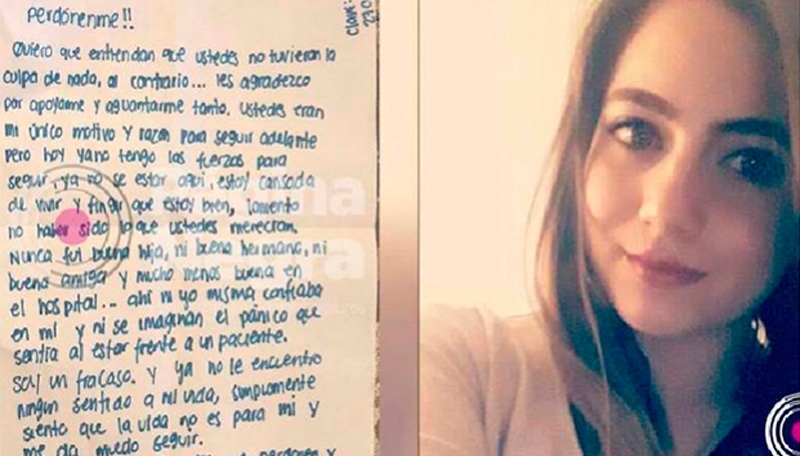 Perdónenme!!
Clave:
Quiero que entiendan que ustedes no tuvieron la
culpa de nada, al contrario... les agradezco
por apoyarme y aguantarme tanto. Ustedes eran
mi único motivo y razón para seguir adelante
pero hoy ya no tengo las fuerzas para
seguir, ya no se estar aquí, estoy cansada
de vivir y fingir que estoy bien, lamento
no haber sido lo que ustedes merecían.
Nunca fui buena hija, ni buena hermana, ni
buena amiga y mucho menos buena en
el hospital... ahí ni yo misma confiaba
en mí y ni se imaginan el pánico que
sentía al estar frente a un paciente.
Soy un fracaso. Y ya no le encuentro
ningún sentido a mi vida, simplemente
siento que la vida no es para mí y
me da miedo seguir.